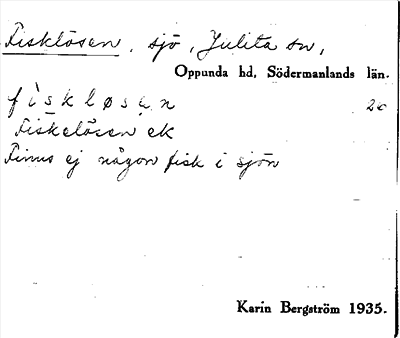 Fisklösen, sjö, Julita sn,
Oppunda hd, Södermanlands län.
fiskløsen 20
Fiskelösen ek
Finns ej någon fisk i sjön
Karin Bergström 1935.